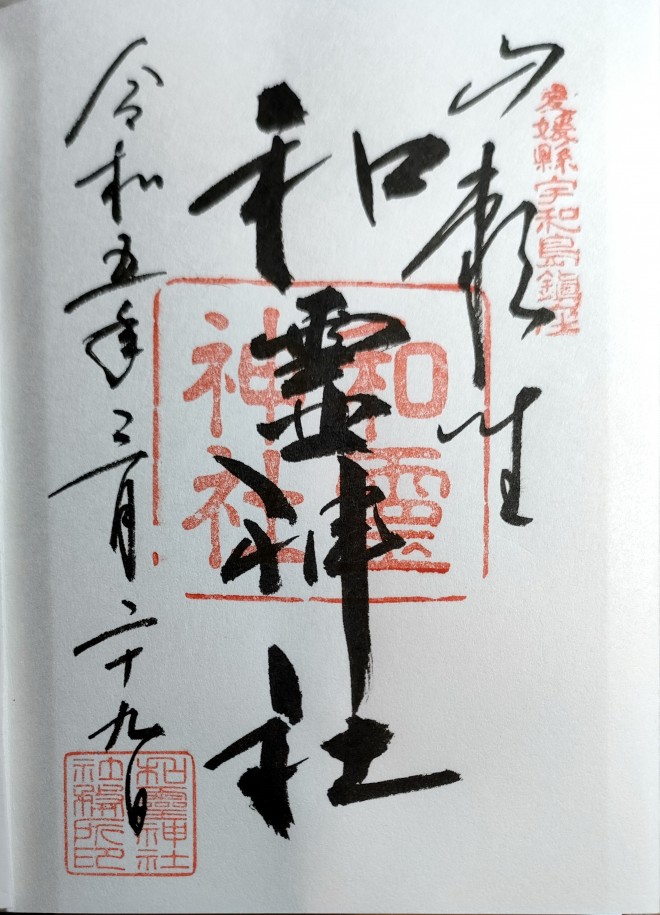 愛媛縣宇和島鎮座
山頼
和靈神社
和靈
神社
令和五年三月二十九日
和靈神社
社務所印